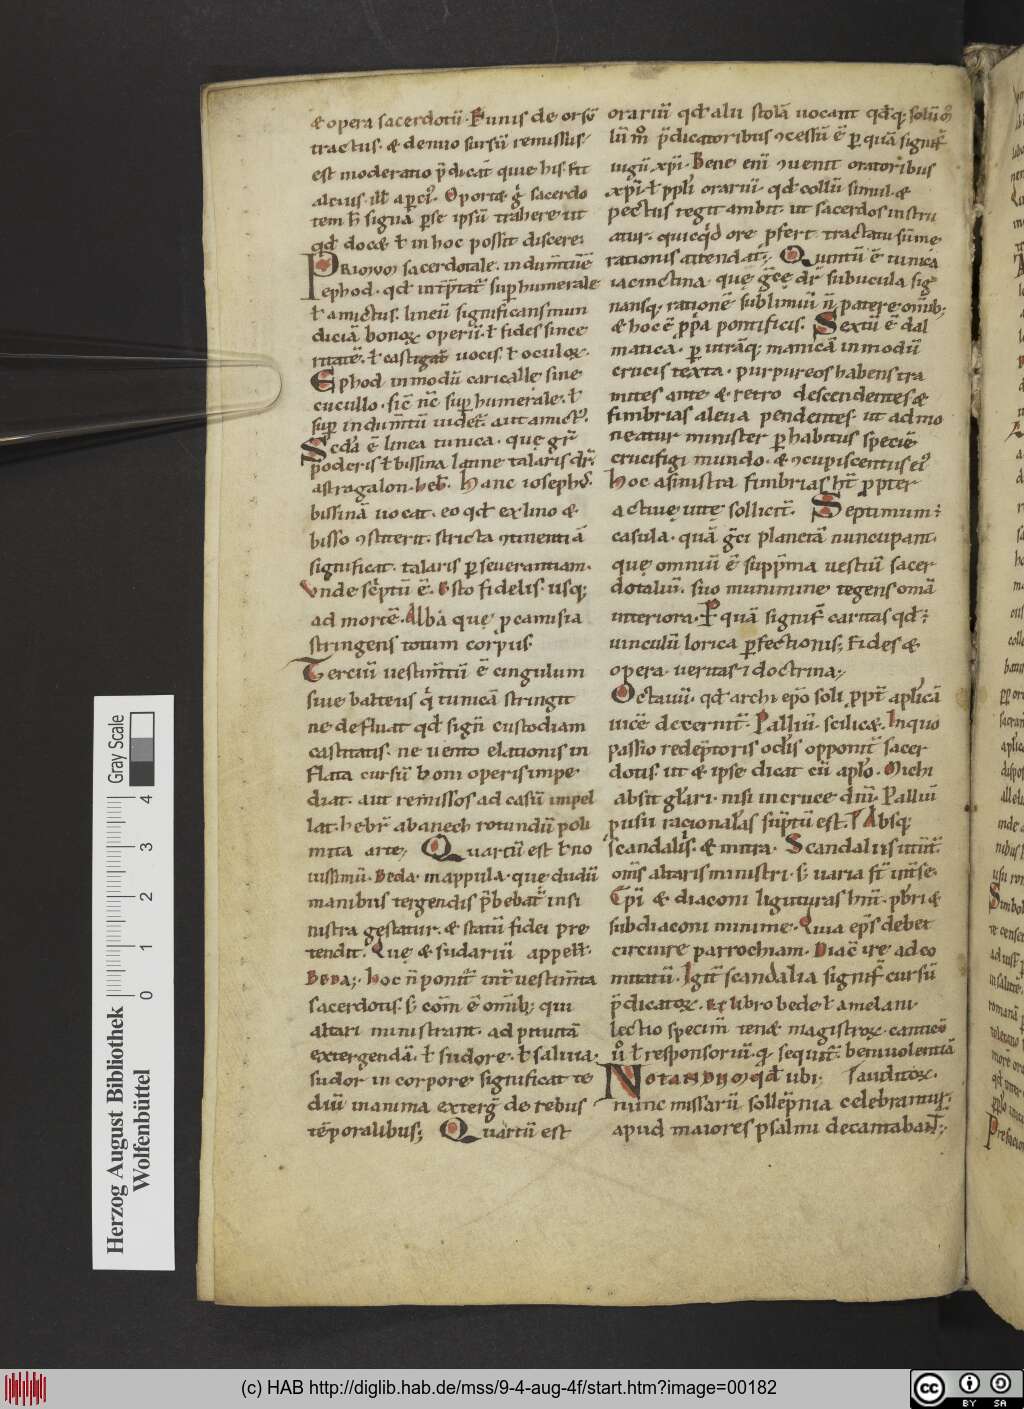 & opera sacerdotū. Funis de orsū
tractus. & denuo sursū remissus.
est moderatio p̄dicat̄ quie his fit
altius. ill̄
Oport& ḡ sacerdo
tem h̄ signa p̱se ipsū trahere ut
qđ doc& ł in hoc possit discere.
PRIMUM sacerdotale. indum̄tū ē
ephod. qđ int̄p̄tat̄ sup̱humerale
ł amictus. lineū significans mun
diciā bonoꝝ operū. ł fides since
ritatē. ł castigat̄ uocis ł oculoꝝ.
Ephod in modū caricallę sine
cucullo. sic̄ nc̄ sup̱humerale. ł
sup̱ indum̄tū uidet̄. aut amict᷒.
Scđa ē linea tunica. quę gr̄
poderis ł bissina latine talaris dr̄.
astragalon. heb̄. hanc ioseph᷒
bissinā uocat. eo qđ ex lino &
bisso ꝯstiterit. stricta ꝯtinentiā
significat. talaris p̱seuerantiam.
Vnde sc̄ptū ē. Esto fidelis. usq;
ad mortē. Alba quę p̱ camisia
stringens totum corpus.
Terciū uestim̄tū ē cingulum
siue balteus q̇ tunicā stringit
ne defluat qđ sign̄ custodiam
castitatis. ne uento elationis in
flata cursū boni operis impe
diat. aut remissos ad casū impel
lat. hebr̄ abanech rotundū poli
mita arte; Quartū est t̄no
uissimū. Beda. mappula. que dudū
manibus tergendis p̄bebat̄ in si
nistra gestatur. & statū fidei pre
tendit. Que & sudariū appell̄.
BEDA;. hoc n̄ ponit̄ int̄ uestim̄ta
sacerdotis. s; com̄ ē om̄ib; qui
altari ministrant. ad pituitā
extergendā. ł sudore. ł saliua.
sudor in corpore significat te
diū in anima exterg̃ de rebus
tēporalibus; Quartū est
orariū qđ alii stolā uocant qđq; solum̄
lūm̊ p̄dicatoribus ꝯcessū ē p̱ quā signif̄
iugū xp̄i. Bene eni ꝯuenit oratoribus
xp̄i ł ppli orariū. qđ collū simul. &
pectus tegit ambit. ut sacerdos instru
atur. quicq̇d ore p̱fert tractatu sūme
rationis attendat; Quintū ē tunica
iacinctina. quę ḡcę dr̄ subucula sig̃
nansq; rationē sublimiū n̄ patere om̄ib;
& hoc ē pp̄a pontificis. Sextū ē dal
matica. p̱ utrāq; manicā in modū
crucis texta. purpureos habens tra
mites ante & retro descendentes &
fimbrias aleua pendentes. ut ad mo
neatur minister p̱ habitus speciē
crucifigi mundo. & ꝯcupiscentiis ei᷒.
hoc a sinistra fimbrias ht̄ p̱pter
actiuę uitę sollicit̄. Septimum:
casula. quā ḡci planetā nuncupant.
que omniū ē supp̄ma uestiū sacer
dotaliū. suo munimine tegens om̄a
interiora. P̱ quā signif̄ caritas qđ:
uinculū lorica p̱fectionis; Fides &
opera. ueritas ⁊ doctrina;
Octauū. qđ archiep̄o soli ppt̄ aplīcā
uicē decernit̄. Palliū. scilic&. In quo
passio redēptoris oclīs opponit̄ sacer
dotis ut & ipse dicat cū aplō. Michi
absit glari. nisi in cruce dn̄i. Palliū
pusti racionalas sup̄tū est. Absq;
scandalis. & mitra. Scandaliis utunt̄.
om̄s altaris ministri. s; uaria st̄ int̄ se.
Ep̄i & diaconi ligituras hn̄t. pb̄ri &
subdiaconi minime. Quia ep̄s debet
circuire parrochiam. Diac̄ ire ad co
mitatū. Igit̄ scandalia signif̄ cursū
p̄dicatoꝝ. Ex libro bede ł amelani.
lectio specim̄ tenet magistroꝝ. canticū
ů ł responsoriū. q̇ sequit̄: beniuolentiā
NOTANDUM qđ ubi. auditoꝝ.
nunc missarū sollēpnia celebrantur
apud maiores psalmi decantabant;
Herzog August Bibliothek
Wolfenbüttel
0 1 2 3 4
Gray Scale
(c) HAB http://diglib.hab.de/mss/9-4-aug-4f/start.htm?image=00182
cc BY SA